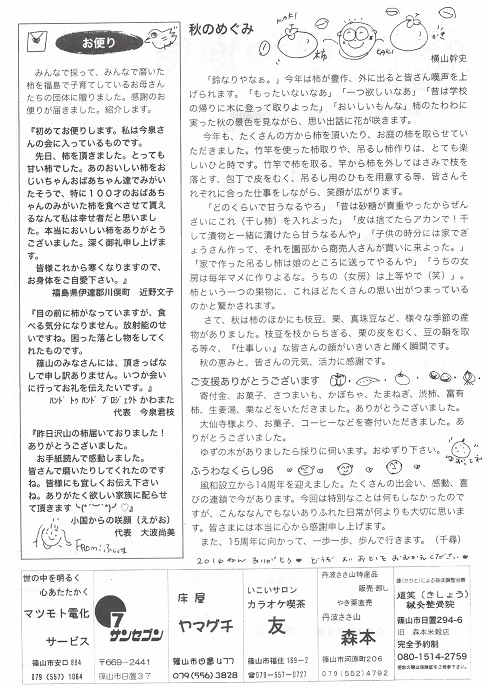 お便り
みんなで採って、みんなで磨いた
柿を福島で子育てしているお母さん
たちの団体に贈りました。感謝のお
便りが届きました。紹介します。
『初めてお便りします。私は今泉さ
んの会に入っているものです。
先日、柿を頂きました。とっても
甘い柿でした。あのおいしい柿をお
じいちゃんおばあちゃん達でみがい
たそうで、特に１００才のおばあち
ゃんのみがいた柿を食べさせて貰え
るなんて私は幸せ者だと思いまし
た。本当においしい柿をありがとう
ございました。深く御礼申し上げま
す。
皆様これから寒くなりますので、
お身体をご自愛下さい。』
福島県伊達郡川俣町　近野文子
『目の前に柿がなっていますが、食
べる気分になりません。放射能のせ
いですね。困った落とし物をしてく
れたものです。
篠山のみなさんには、頂きっぱな
しで申し訳ありません。いつか会い
に行ってお礼を伝えたいです。』
ﾊﾝﾄﾞ ﾄｩ ﾊﾝﾄﾞ ﾌﾟﾛｼﾞｪｸﾄ かわまた
代表　今泉君枝
『昨日沢山の柿届いておりました！
ありがとうございました。
お手紙読んで感動しました。
皆さんで磨いたりしてくれたのです
ね。皆様にも宜しくお伝え下さい
ね。ありがたく欲しい家族に配らせ
て頂きます
小国からの咲顔（えがお）
代表　大波尚美
From:ふくしま
秋のめぐみ
KAKI
柿
KAKI
かき
横山幹史
「鈴なりやなぁ。」今年は柿が豊作、外に出ると皆さん嘆声を上
げられます。「もったいないなあ」「一つ欲しいなあ」「昔は学校
の帰りに木に登って取りよった」「おいしいもんな」柿のたわわに
実った秋の景色を見ながら、思い出話に花が咲きます。
今年も、たくさんの方から柿を頂いたり、お庭の柿を取らせてい
ただきました。竹竿を使った柿取りや、吊るし柿作りは、とても楽
しいひと時です。竹竿で柿を取る、竿から柿を外してはさみで枝を
落とす、包丁で皮をむく、吊るし用のひもを用意する等、皆さんそ
れぞれに合った仕事をしながら、笑顔が広がります。
「どのくらいで甘うなるやろ」「昔は砂糖が貴重やったからぜん
ざいにこれ（干し柿）を入れよった」「皮は捨てたらアカンで！干
して漬物と一緒に漬けたら甘うなるんや」「子供の時分には家でぎ
ょうさん作って、それを園部から商売人さんが買いに来よった。」
「家で作った吊るし柿は娘のところに送ってやるんや」「うちの女
房は毎年マメに作りよるな。うちの（女房）は上等やで（笑）」。
柿という一つの果物に、これほどたくさんの思い出がつまっている
のかと驚かされます。
さて、秋は柿のほかにも枝豆、栗、真珠豆など、様々な季節の産
物がありました。枝豆を枝からちぎる、栗の皮をむく、豆の鞘を取
る等々、『仕事しぃ』な皆さんの顔がいきいきと輝く瞬間です。
秋の恵みと、皆さんの元気、活力に感謝です。
ご支援ありがとうございます
寄付金、お菓子、さつまいも、かぼちゃ、たまねぎ、渋柿、富有
柿、生姜湯、栗などをいただきました。ありがとうございました。
大仙寺様より、お菓子、コーヒーなどを寄付いただきました。あ
りがとうございました。
ゆずの木がありましたら採りに伺います。おゆずり下さい。
ふうわなくらし96
風和設立から14周年を迎えました。たくさんの出会い、感動、喜
びの連鎖で今があります。今回は特別なことは何もしなかったので
すが、こんななんでもないありふれた日常が何よりも大切に思いま
す。皆さまには本当に心から感謝申し上げます。
また、15周年に向かって、一歩一歩、歩んで行きます。（千尋）
2016ねん ありがとう どうぞ よいおとしを おむかえください
世の中を明るく
心あたたかく
マツモト電化
サービス
篠山市安口884
079（557）1064
7
サンセブン
〒669－2441
篠山市日置37
床屋
ヤマグチ
篠山市日置477
079(556)3828
いこいサロン
カラオケ喫茶
友
篠山市福住169－2
☎079－557－0727
丹波ささ山特産品
販売・卸し
やき栗直売
丹波ささ山
森本
篠山市河原町206
079(552)4792
道笑（きしょう）
鍼灸整骨院
篠山市日置294-6
旧　森本米穀店
完全予約制
080-1514-2759